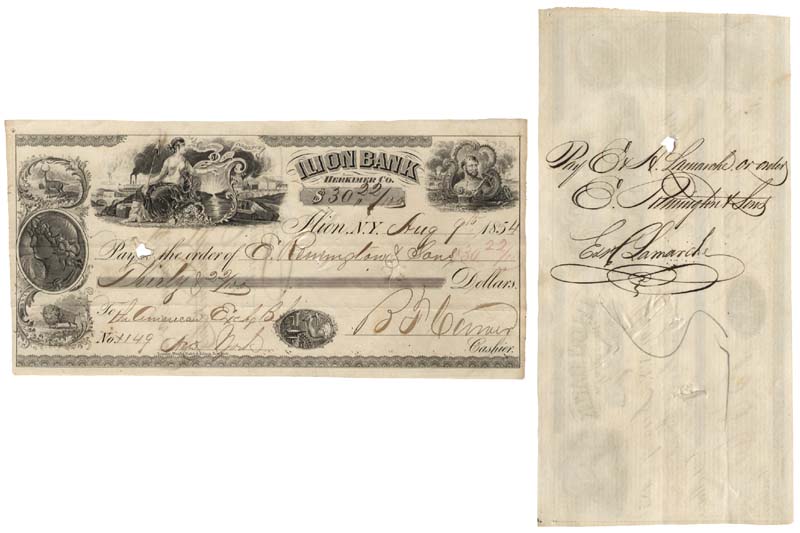 ILION BANK
HERKIMER CO.
$30 22/100
Ilion, N.Y. Aug 9th 1854
Pay to the order of E. Remington & Sons $30 22/100
Thirty & 22/100 Dollars.
To The American Exch Bk
No. 1149 New York Cashier.
Pay E & H. Lamarche or order
E. Remington & Sons
E & H Lamarche